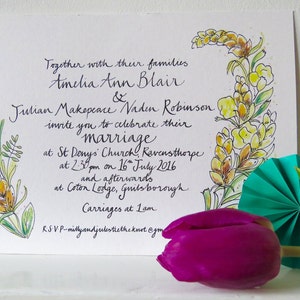 Together with their families
Amelia Ann Blair
&
Julian Makepeace Naden Robinson
invite you to celebrate their
marriage
at St Denys' Church, Ravensthorpe
at 2.30pm on 16th July 2016
and afterwards
at Coton Lodge, Guilsborough
Carriages at 1am
RSVP-